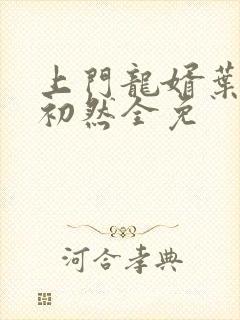 上門龍婿葉
初然全免
河合孝典